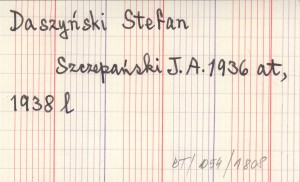 Daszyński Stefan
Szczepański J.A. 1936 at,
1938 l
DT/1054/1808